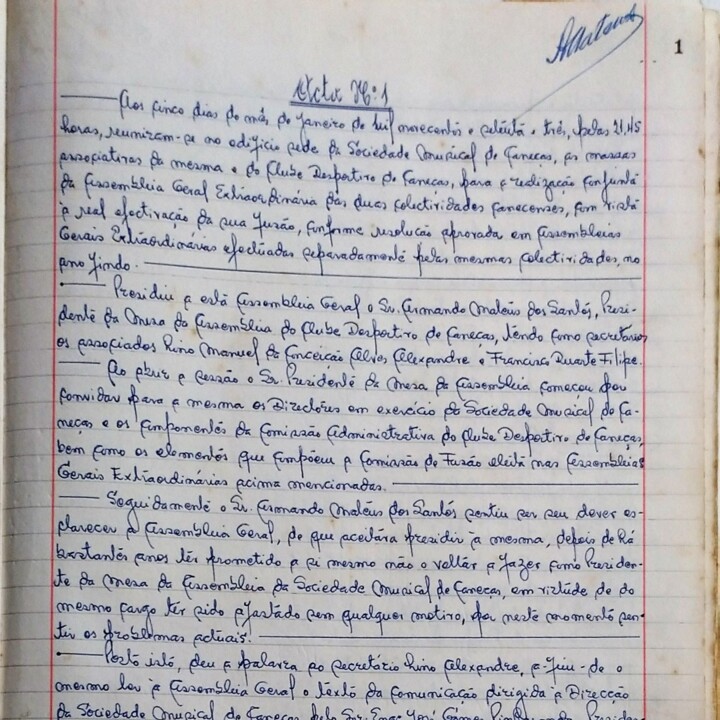 1
Acta Nº 1
Aos cinco dias do mês de Janeiro de mil novecentos e setenta e três, pelas 21,45
horas, reuniram-se no edifício sede da Sociedade Musical de Caneças, as massas
associativas da mesma e do Clube Desportivo de Caneças, para a realização conjunta
da Assembleia Geral Extraordinária das duas colectividades canecenses, com vista
à real efectivação da sua fusão, conforme resolução aprovada em Assembleias
Gerais Extraordinárias efectuadas separadamente pelas mesmas colectividades, no
ano findo.
Presidiu a esta Assembleia Geral o Sr. Armando Mateus dos Santos, Presi-
dente da Mesa da Assembleia do Clube Desportivo de Caneças, tendo como secretários
os associados Lino Manuel da Conceição Alves Alexandre e Francisco Duarte Filipe.
Ao abrir a sessão o Sr. Presidente da Mesa da Assembleia começou por
convidar para a mesma os Directores em exercício da Sociedade Musical de Ca-
neças e os componentes da Comissão Administrativa do Clube Desportivo de Caneças,
bem como os elementos que compõem a Comissão de Fusão eleita nas Assembleias
Gerais Extraordinárias acima mencionadas.
Seguidamente o Sr. Armando Mateus dos Santos sentiu ser seu dever es-
clarecer a Assembleia Geral, de que aceitára presidir à mesma, depois de há
bastantes anos ter prometido a si mesmo não o voltar a fazer como Presiden-
te da Mesa da Assembleia da Sociedade Musical de Caneças, em virtude de do
mesmo cargo ter sido afastado sem qualquer motivo, por neste momento sen-
tir os problemas actuais.
Posto isto, deu a palavra ao secretário Lino Alexandre, a-fim-de o
mesmo ler à Assembleia Geral o texto da comunicação dirigida à Direcção
da Sociedade Musical de Caneças pelo Snr. Engº José Gomes